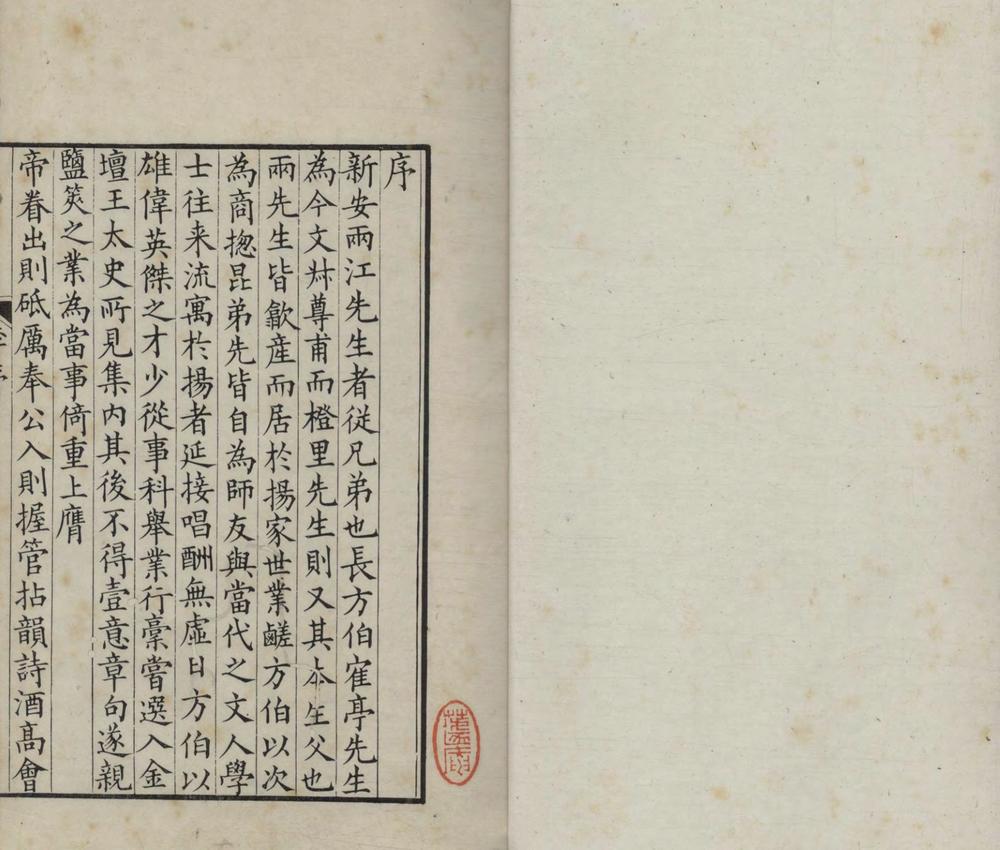 序
新安兩江先生者從兄弟也長方伯寉亭先生
為今文叔尊甫而橙里先生則又其本生父也
兩先生皆歙産而居於揚家世業鹺方伯以次
為商揔昆弟先皆自為師友與當代之文人學
士往来流寓於揚者延接唱酬無虛日方伯以
雄偉英傑之才少從事科舉業行稾嘗選入金
壇王太史所見集内其後不得壹意章句遂親
鹽筴之業為當事倚重上膺
帝眷出則砥厲奉公入則握管拈韻詩酒高會